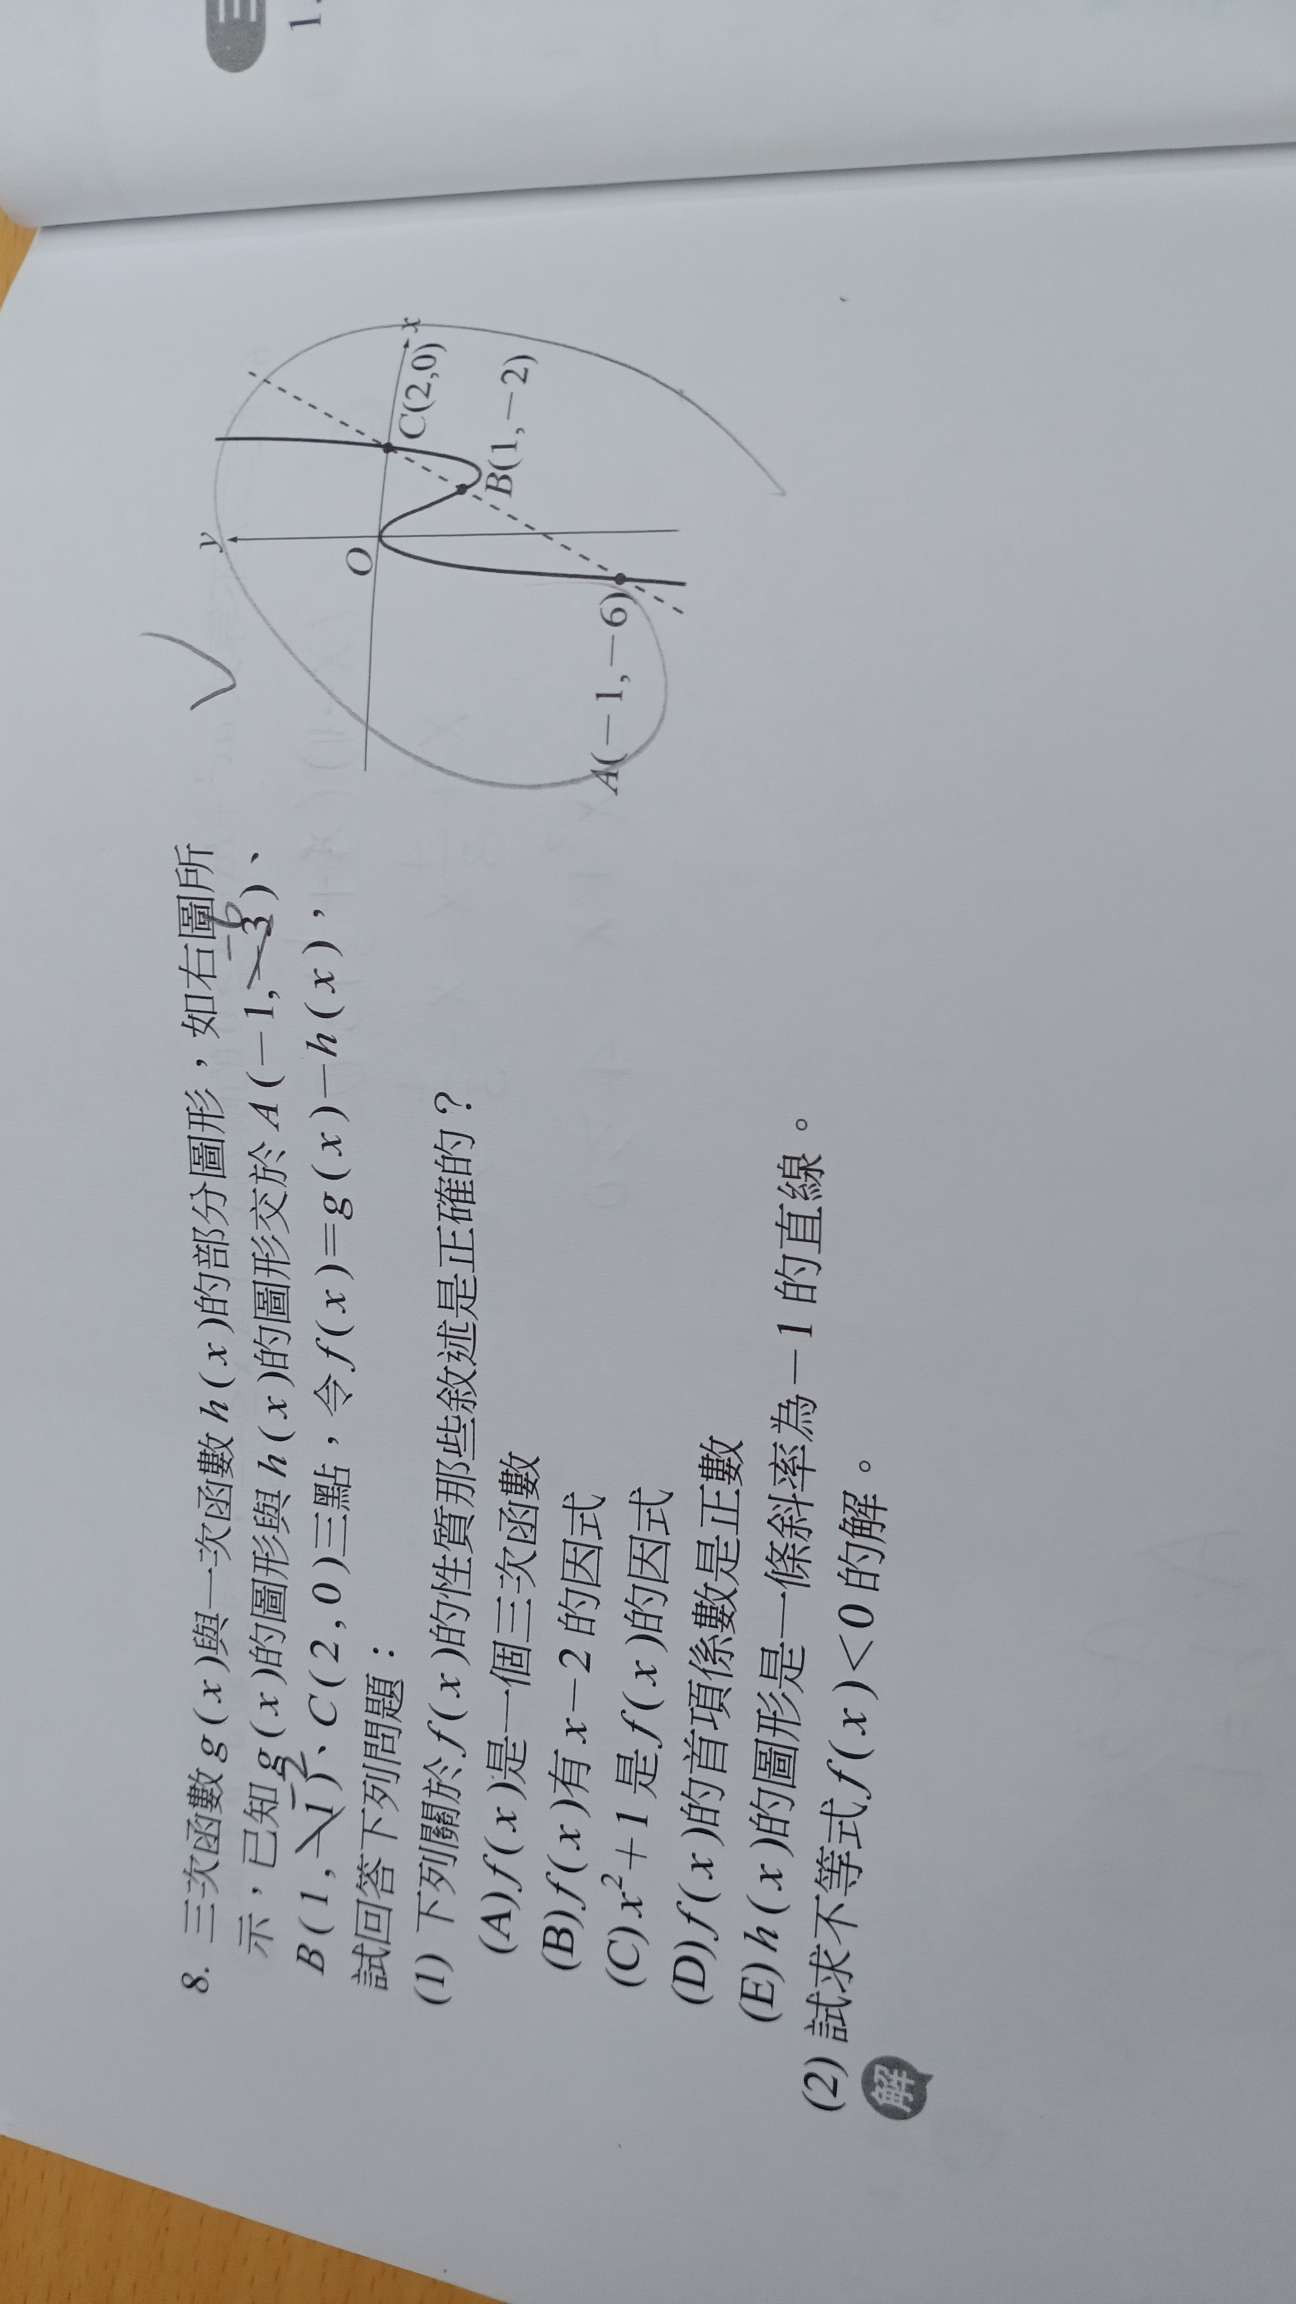 三
1.
8. 三次函數 g(x)與一次函數 h(x)的部分圖形，如右圖所
示，已知 g(x)的圖形與 h(x)的圖形交於 A(−1,−3)、
−6
B(1,−1)、C(2,0)三點，令 f(x)=g(x)−h(x)，
−2
試回答下列問題：
(1) 下列關於 f(x)的性質那些敘述是正確的？
(A) f(x)是一個三次函數
(B) f(x)有 x−2 的因式
(C) x²+1 是 f(x)的因式
(D) f(x)的首項係數是正數
(E) h(x)的圖形是一條斜率為−1 的直線。
(2) 試求不等式 f(x)<0 的解。
解
y
O
x
C(2,0)
B(1,−2)
A(−1,−6)